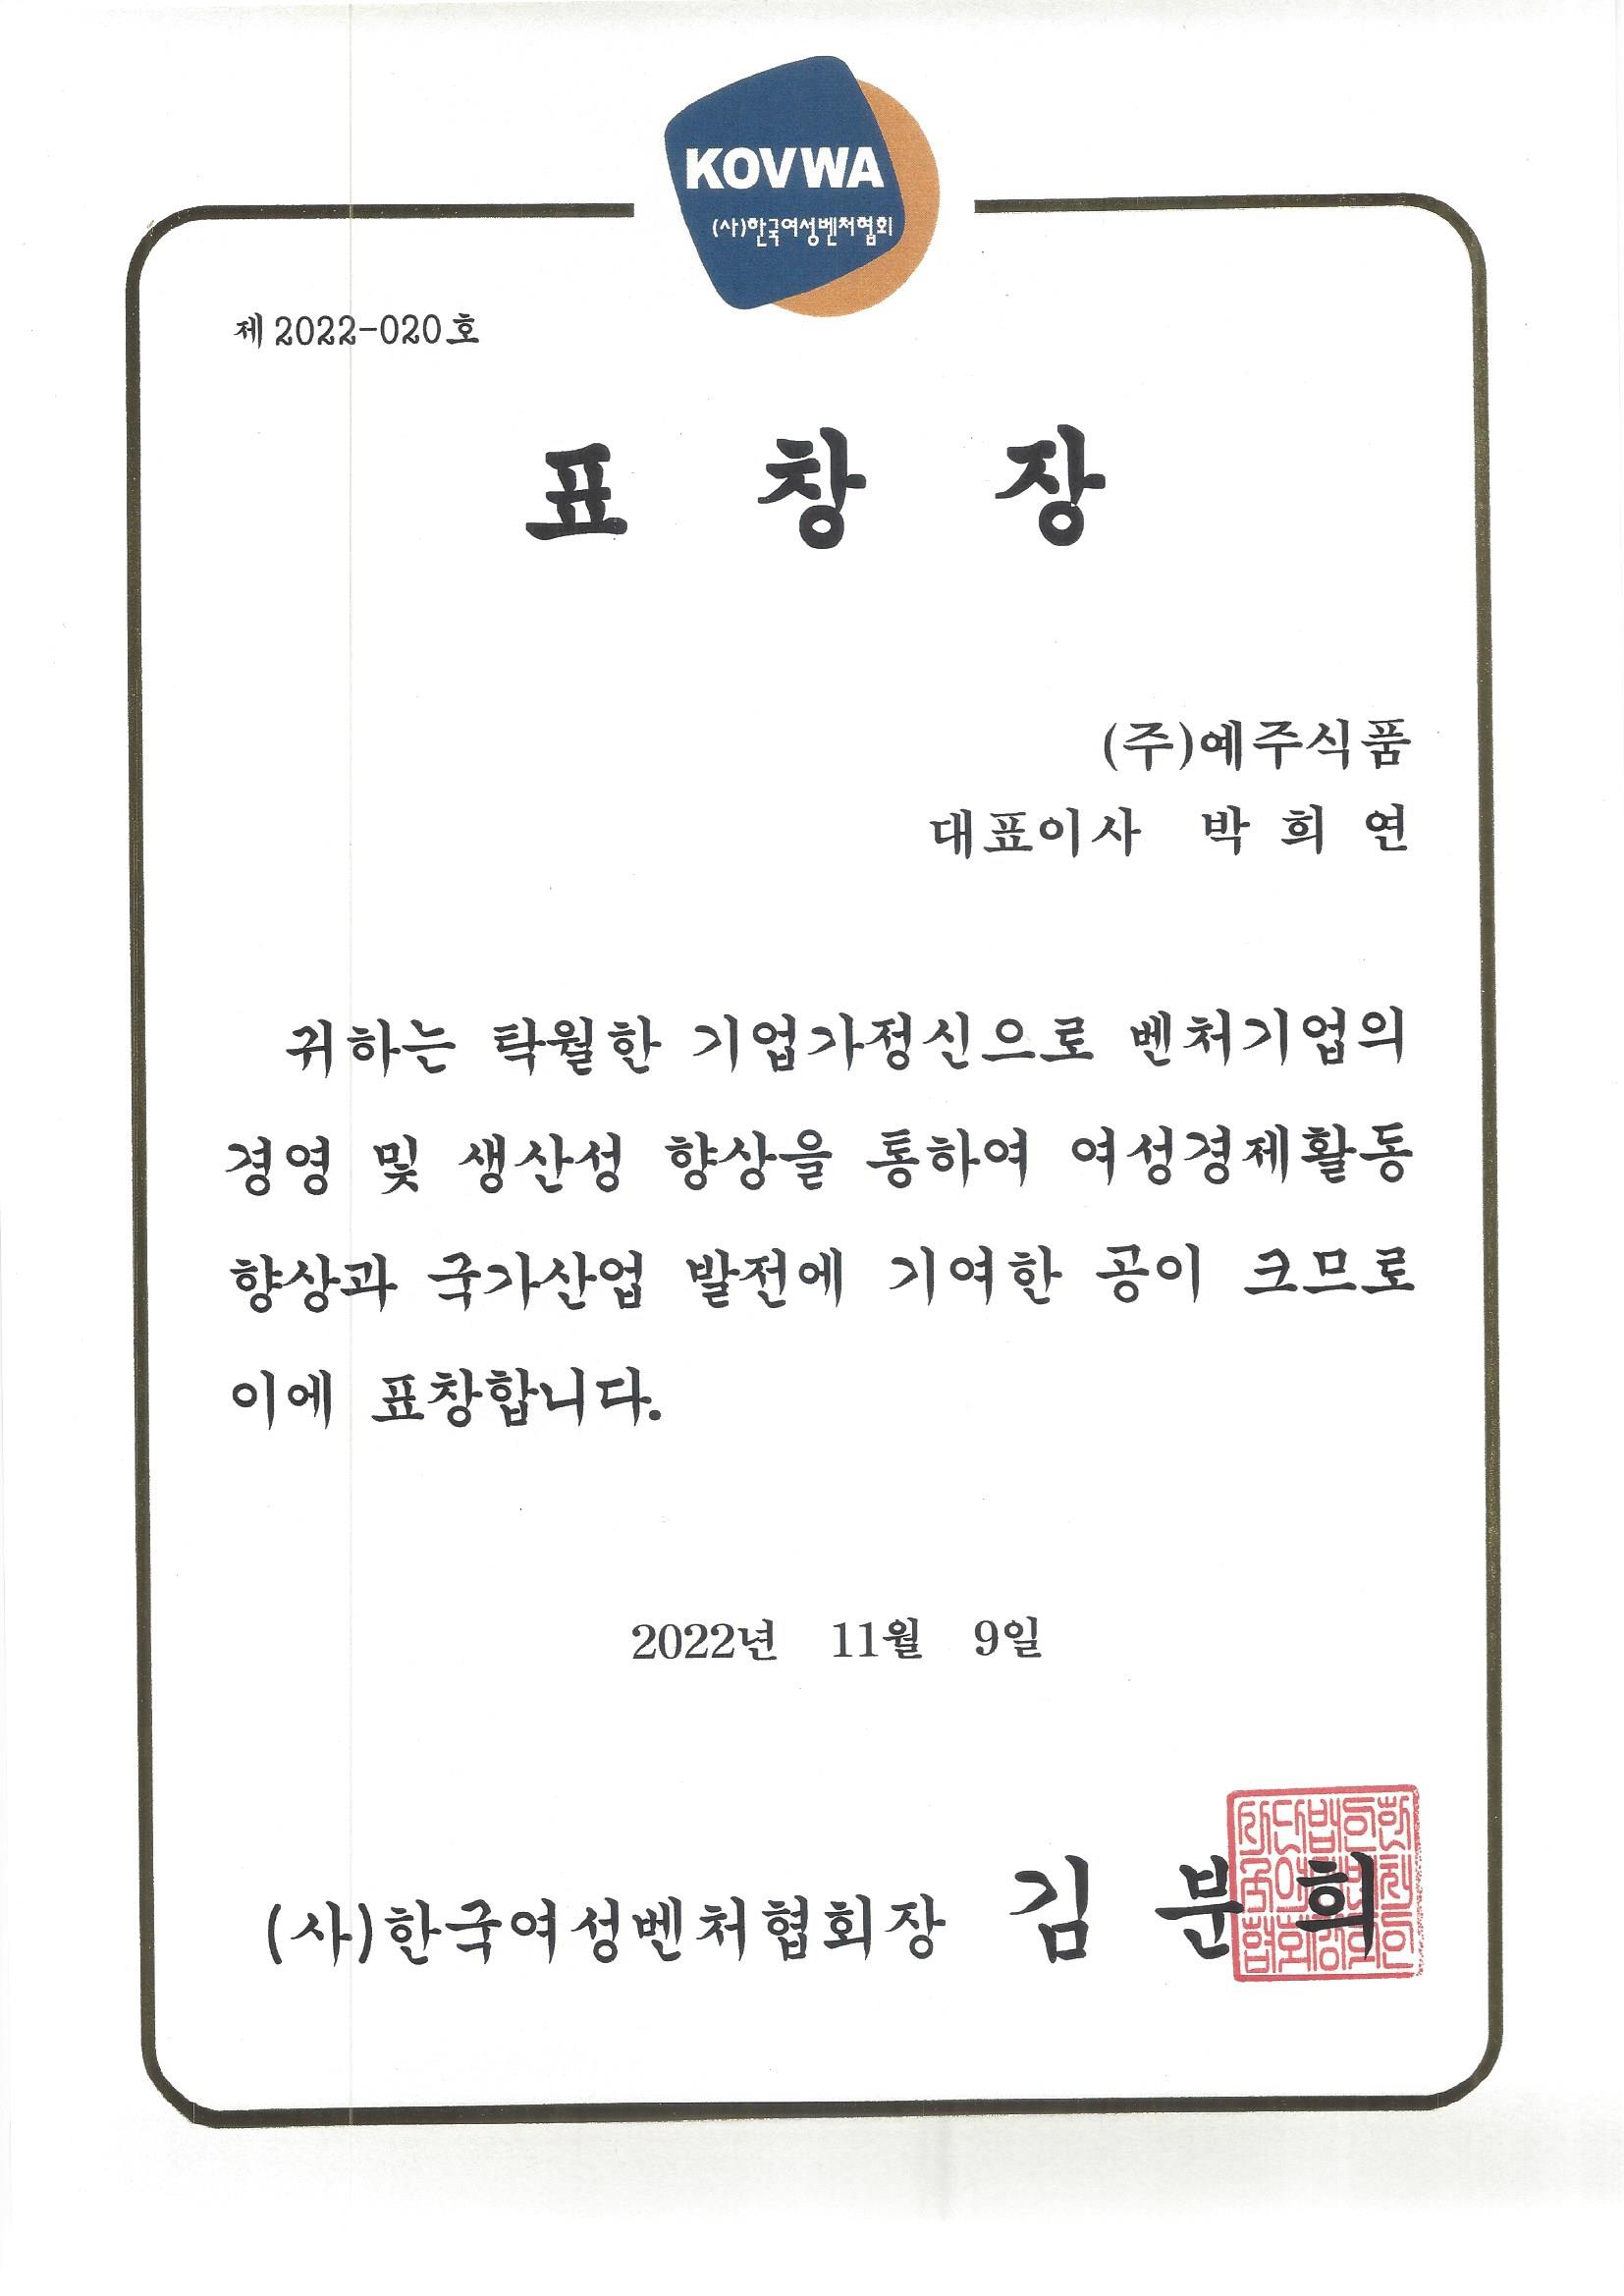 KOVWA
(사)한국여성벤처협회
제 2022-020 호
표 창 장
(주)예주식품
대표이사 박 희 연
귀하는 탁월한 기업가정신으로 벤처기업의
경영 및 생산성 향상을 통하여 여성경제활동
향상과 국가산업 발전에 기여한 공이 크므로
이에 표창합니다.
2022년 11월 9일
(사)한국여성벤처협회장 김 분 희